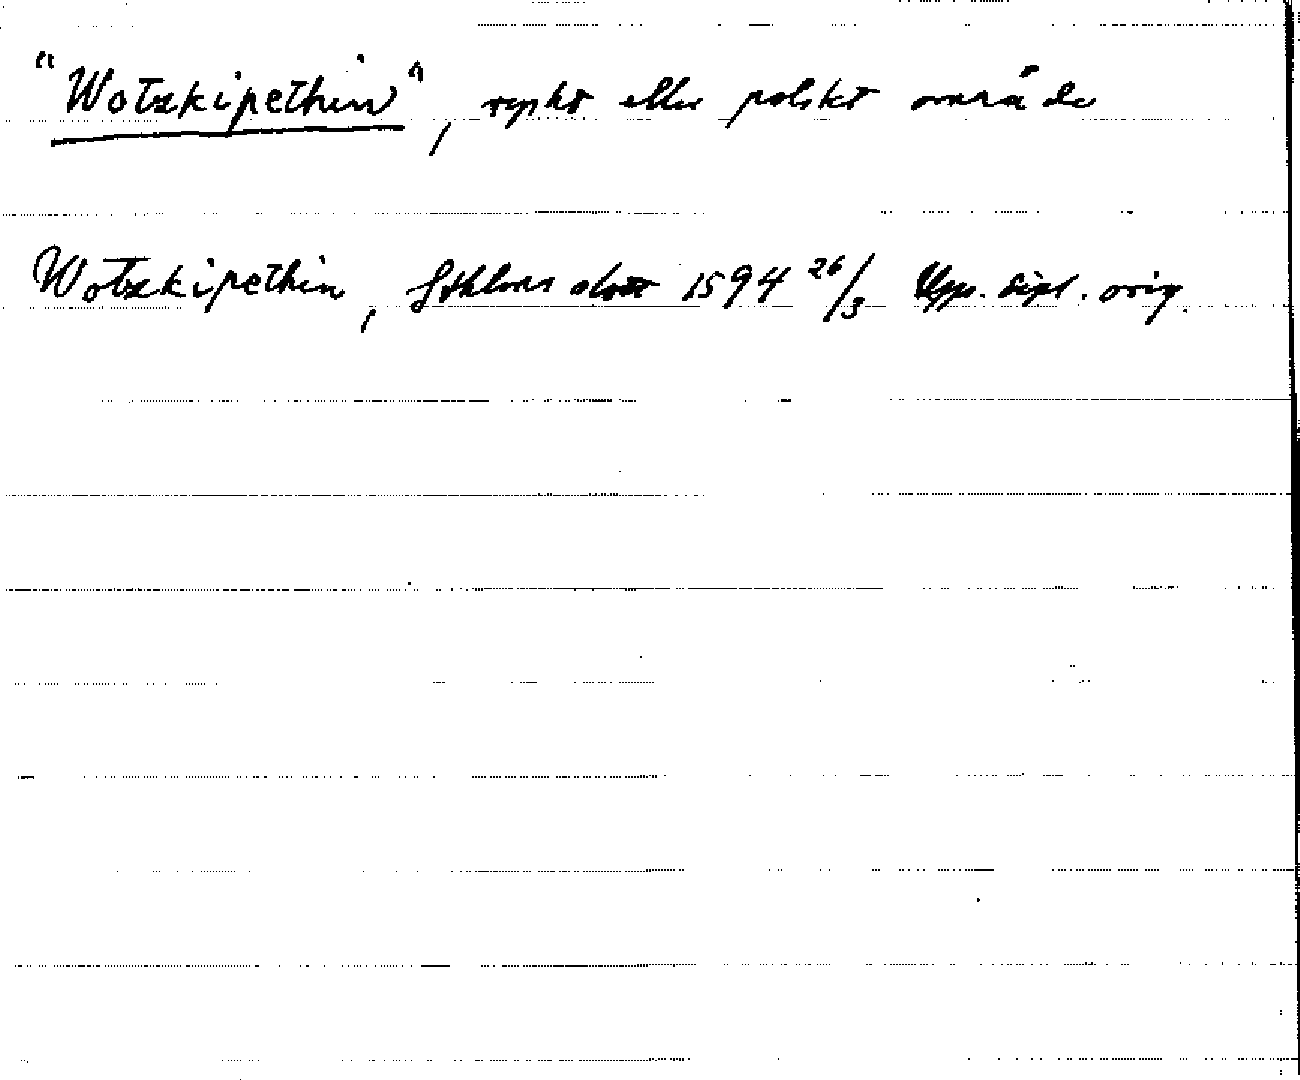 "Wotzkipethin", ryskt eller polskt område
Wotzkipethin, Sthlms slott 1594 26/3 Upps. dipl. orig.